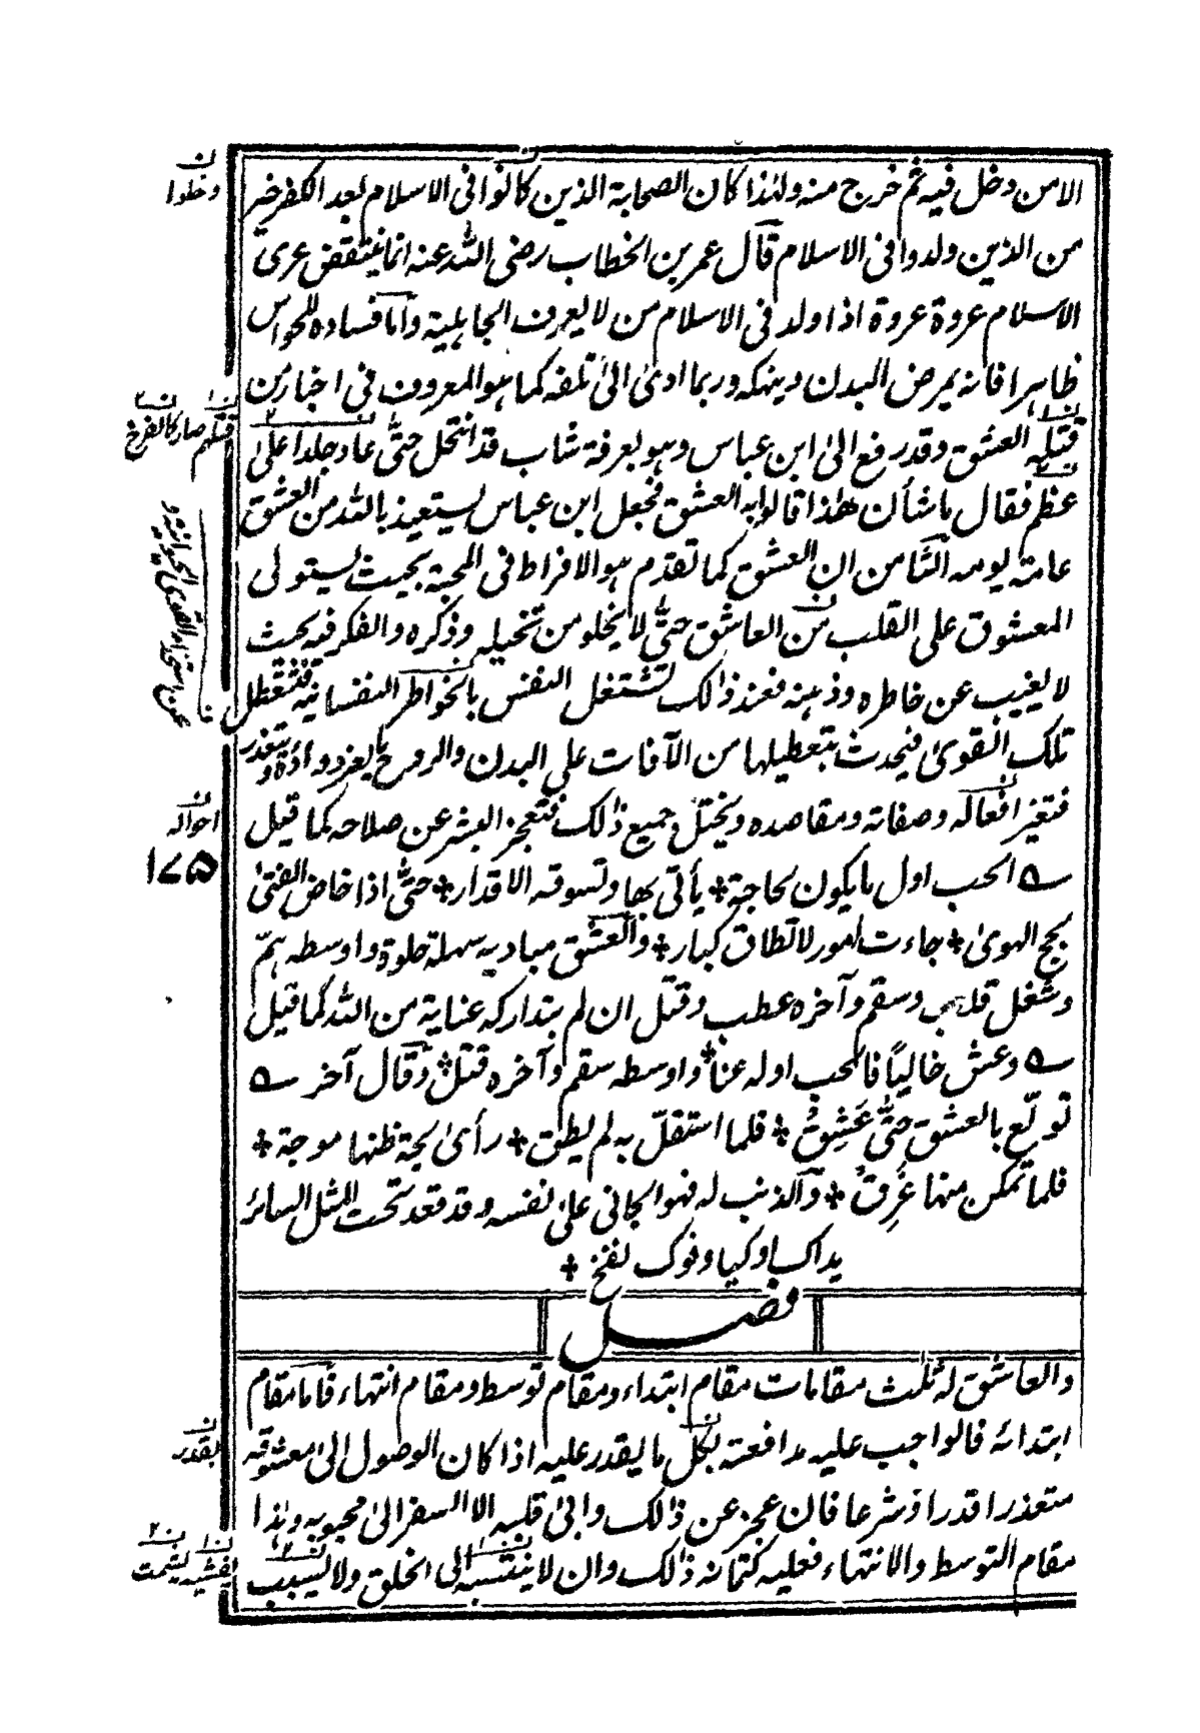 الا من دخل فيه ثم خرج منه ولهذا كان الصحابة الذين كانوا فى الاسلام بعد الكفر خير
من الذين ولدوا فى الاسلام قال عمر بن الخطاب رضى الله عنه انما ينتقض عرى
الاسلام عروة عروة اذا ولد فى الاسلام من لا يعرف الجاهلية واما فساده للحواس
ظاهرا فانه يمرض البدن وينهكه وربما ادى الى تلفه كما هو المعروف فى اخبار من
قتله العشق وقد رفع الى ابن عباس وهو بعرفة شاب قد انتحل حتى عاد جلدا على
عظم فقال ما شأن هذا قالوا به العشق فجعل ابن عباس يستعيذ بالله من العشق
عامة يومه الثامن ان العشق كما تقدم هو الافراط فى المحبة بحيث يستولى
المعشوق على القلب من العاشق حتى لا يخلو من تخيله وذكره والفكر فيه بحيث
لا يغيب عن خاطره وذهنه فعند ذالك تشتغل النفس بالخواطر النفسانيه فتتعطل
تلك القوى فيحدث بتعطيلها من الآفات على البدن والروح ما يعز دواؤه ويتعذر
فتغير افعاله وصفاته ومقاصده ويختل جميع ذالك فتعجز البشر عن صلاحه كما قيل
الحب اول ما يكون لحاجة * يأتى بها وتسوقه الاقدار * حتى اذا خاض الفتى
لجج الهوى * جاءت امور لا تطاق كبار * والعشق مباديه سهلة حلوة واوسطه هم
وشغل قلب وسقم وآخره عطب وقتل ان لم يتداركه عناية من الله كما قيل
وعش خاليًا فالحب اوله عنا * واوسطه سقم وآخره قتل * وقال آخر
تولّع بالعشق حتّى عَشِقْ * فلما استقلّ به لم يطق * رأى لجة ظنها موجة *
فلما تمكن منها غَرِقْ * والذنب له فهو الجانى على نفسه وقد قعد تحت المثل السائر
يداك اوكيا وفوك نفخ *
فصل
والعاشق له ثلث مقامات مقام ابتداء ومقام توسط ومقام انتهاء فاما مقام
ابتدائه فالواجب عليه مدافعته بكل ما يقدر عليه اذا كان الوصول الى معشوقه
متعذرا قدرا وشرعا فان عجز عن ذالك وابى قلبه الا السفر الى محبوبه وهذا
مقام التوسط والانتهاء فعليه كتمانه ذالك وان لا ينتسبه الى الخلق ولا يسبب
دخلوا
قتلهم صار كالفرخ
احواله
١٧٥
بقدر
يفشيه يشمت